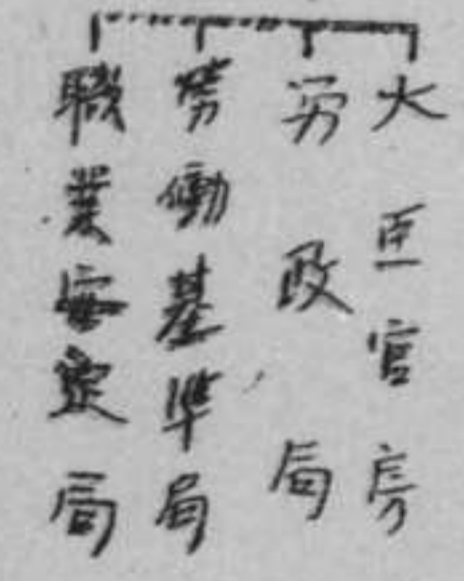 大臣官房
労政局
労働基準局
職業安定局